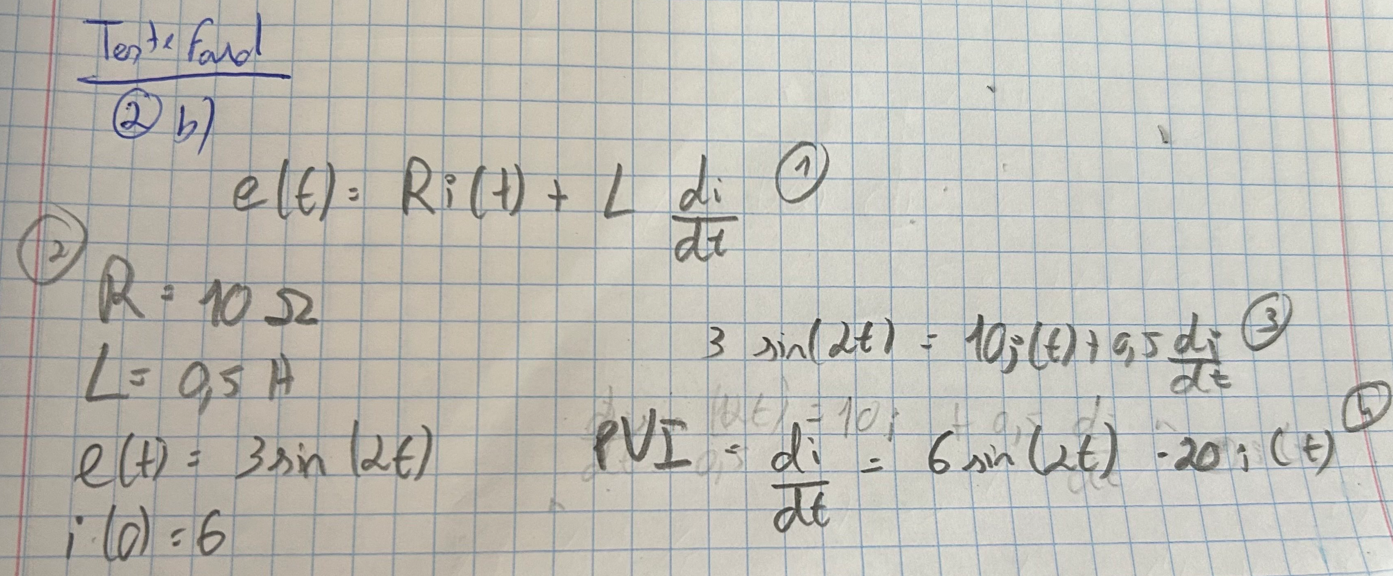 Teste Farol
② b)
e(t) = Ri(t) + L di/dt ①
②
R = 10 Ω
L = 0,5 H
e(t) = 3 sin (2t)
i(0) = 6
3 sin(2t) = 10i(t) + 0,5 di/dt ③
PVI = di/dt = 6 sin(2t) - 20 i(t)